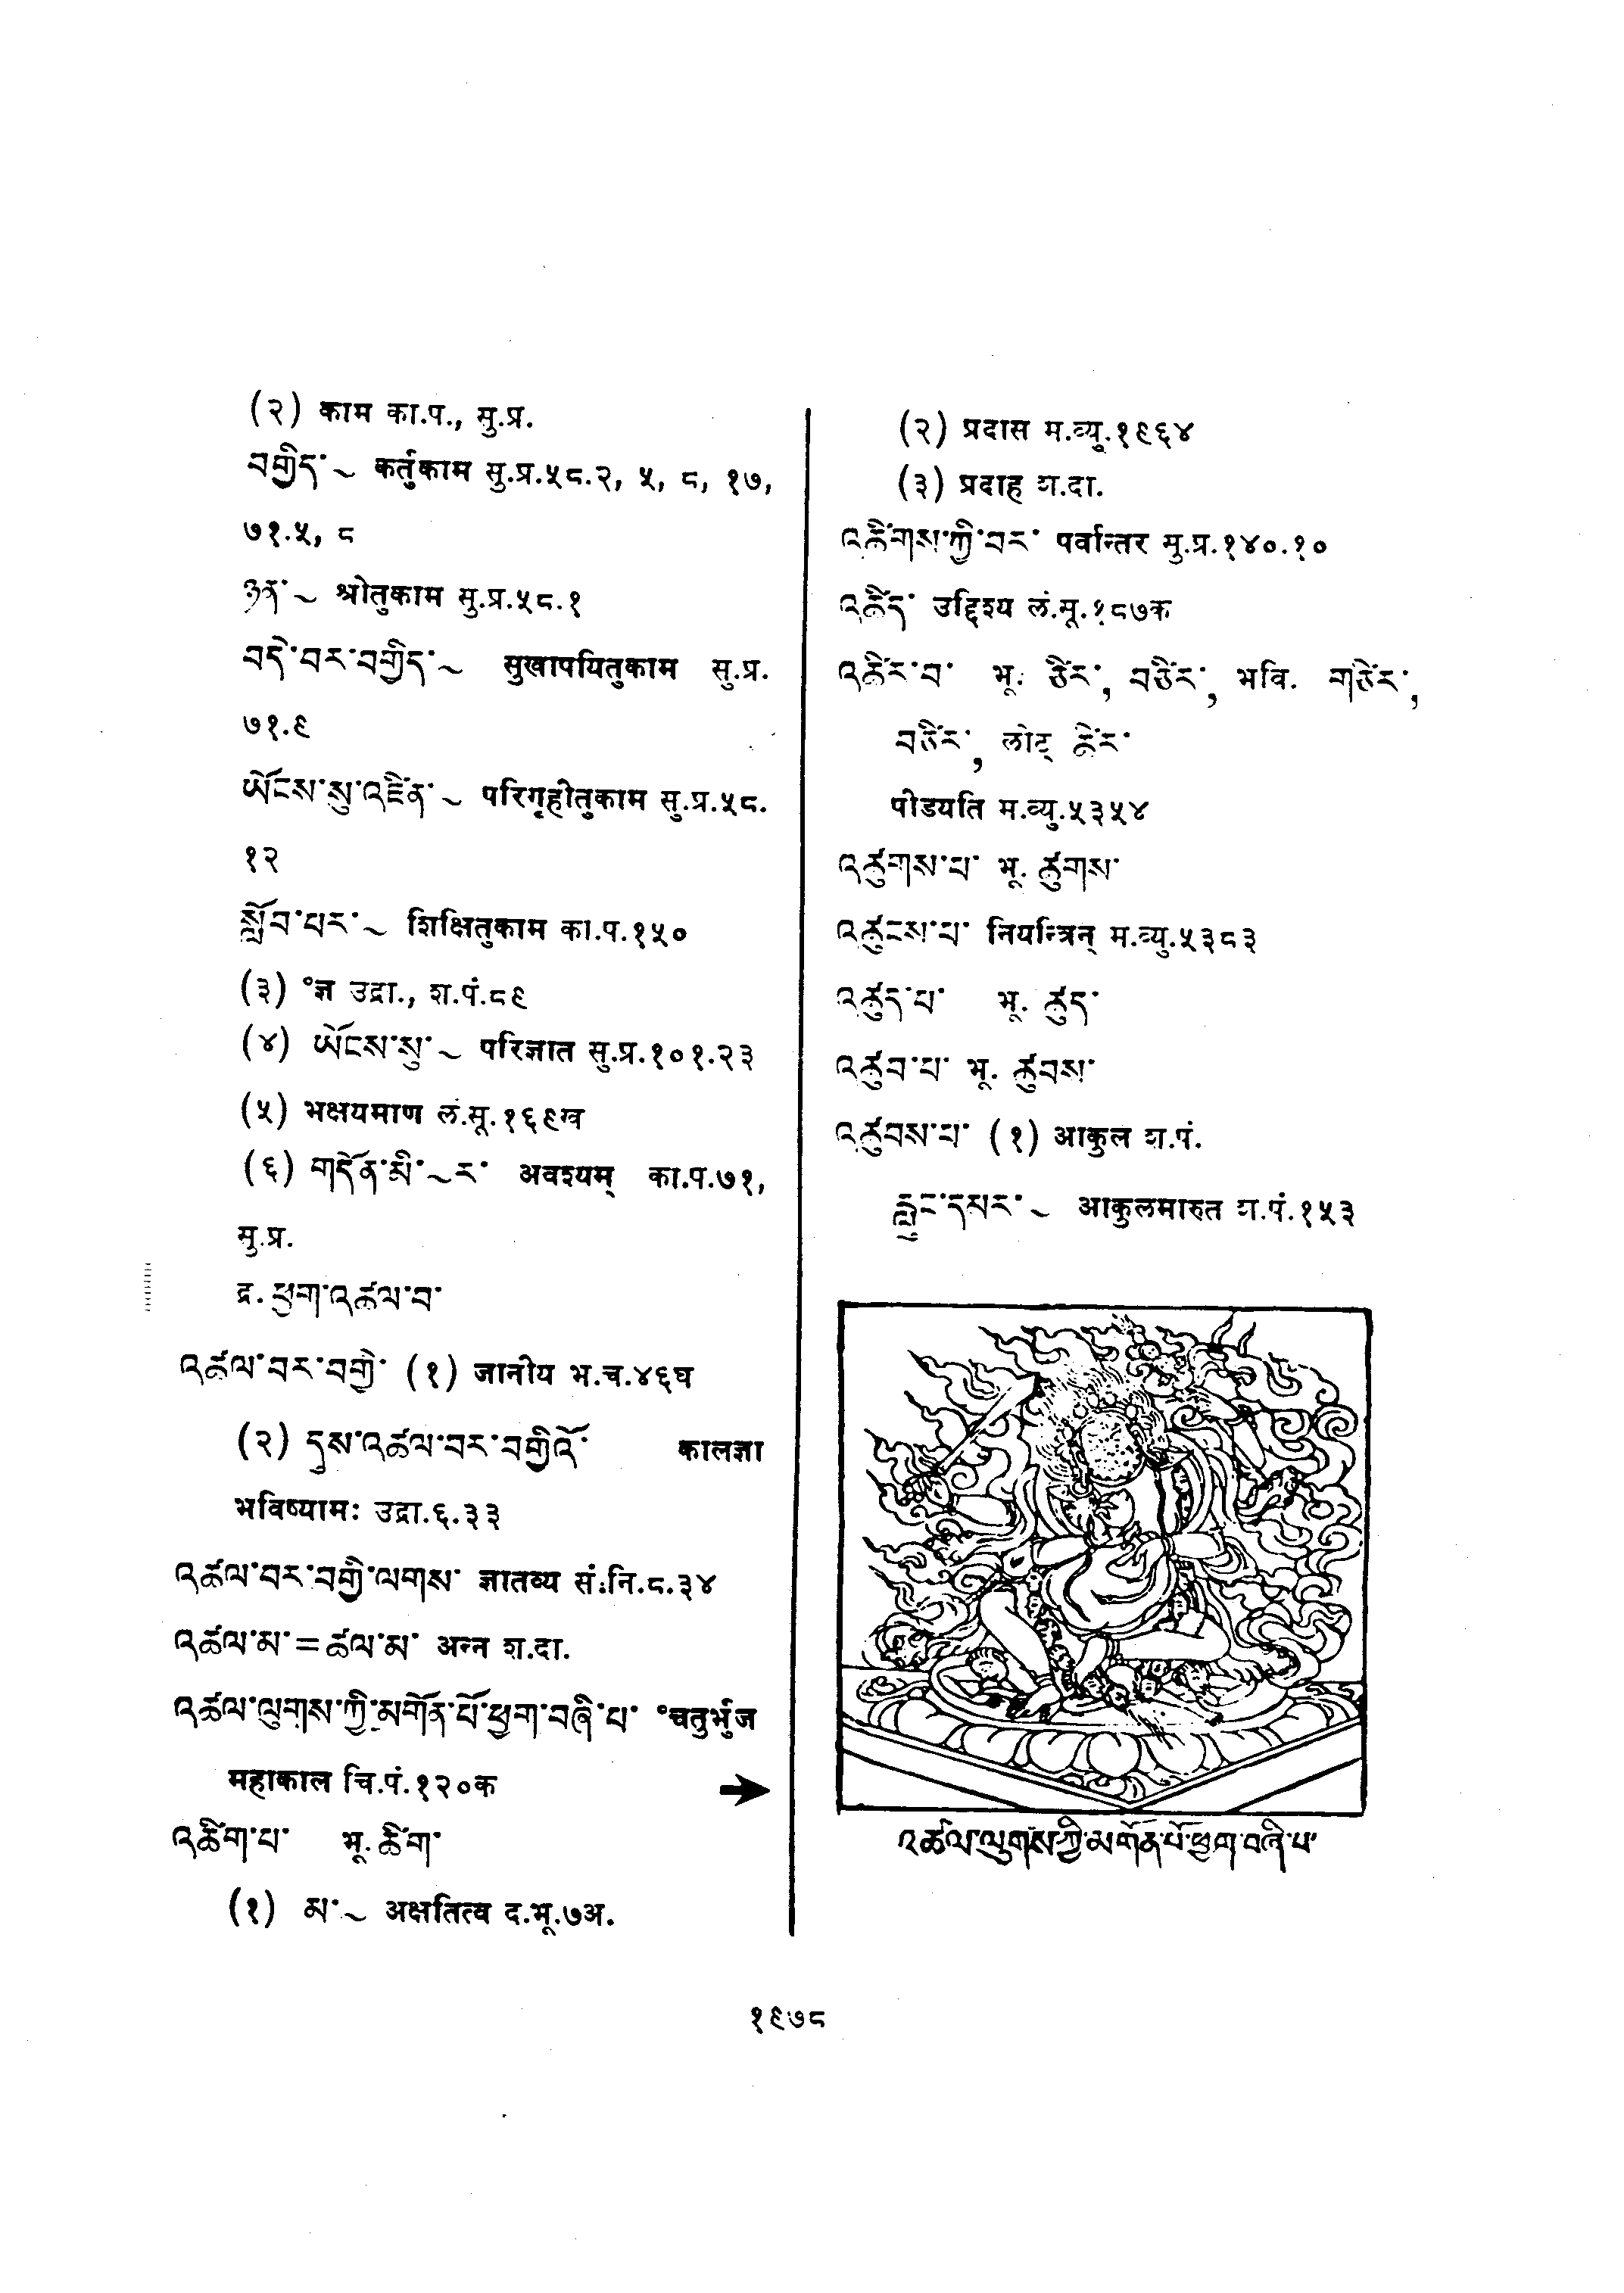 (२) काम का.प., सु.प्र.
བགྱིད་~ कर्तुकाम सु.प्र.५८.२, ५, ८, १७,
७१.५, ८
ཉན་~ श्रोतुकाम सु.प्र.५८.१
བདེ་བར་བགྱིད་~ सुखापयितुकाम सु.प्र.
७१.९
ཡོངས་སུ་འཛིན་~ परिगृहीतुकाम सु.प्र.५८.
१२
སློབ་པར་~ शिक्षितुकाम का.प.१५०
(३) °ज्ञ उद्रा., श.पं.८९
(४) ཡོངས་སུ་~ परिज्ञात सु.प्र.१०१.२३
(५) भक्षयमाण लं.सू.१६९ख
(६) གདོན་མི་~ར་ अवश्यम् का.प.७१,
सु.प्र.
द्र. ཕྱག་འཚལ་བ་
འཚལ་བར་བགྱི་ (१) जानीय भ.च.४६घ
(२) དུས་འཚལ་བར་བགྱིའོ་ कालज्ञा
भविष्यामः उद्रा.६.३३
འཚལ་བར་བགྱི་ལགས་ ज्ञातव्य सं.नि.८.३४
འཚལ་མ་=ཚལ་མ་ अन्न श.दा.
འཚལ་ལུགས་ཀྱི་མགོན་པོ་ཕྱག་བཞི་པ་ °चतुर्भुज
महाकाल चि.पं.१२०क ➔
འཚིག་པ་ भू. ཚིག་
(१) མ་~ अक्षतित्व द.भू.७अ.
(२) प्रदास म.व्यु.१९६४
(३) प्रदाह श.दा.
འཚིགས་ཀྱི་བར་ पर्वान्तर सु.प्र.१४०.१०
འཚིད་ उद्दिश्य लं.सू.१८७क
འཚིར་བ་ भू. ཙིར་, བཙིར་, भवि. གཙིར་,
བཙིར་, लोट् ཚིར་
पीडयति म.व्यु.५३५४
འཚུགས་པ་ भू. ཚུགས་
འཚུངས་པ་ नियन्त्रिन् म.व्यु.५३८३
འཚུད་པ་ भू. ཚུད་
འཚུབ་པ་ भू. ཚུབས་
འཚུབས་པ་ (१) आकुल श.पं.
རླུང་དམར་~ आकुलमारुत श.पं.१५३
འཚལ་ལུགས་ཀྱི་མགོན་པོ་ཕྱག་བཞི་པ་
१९७८